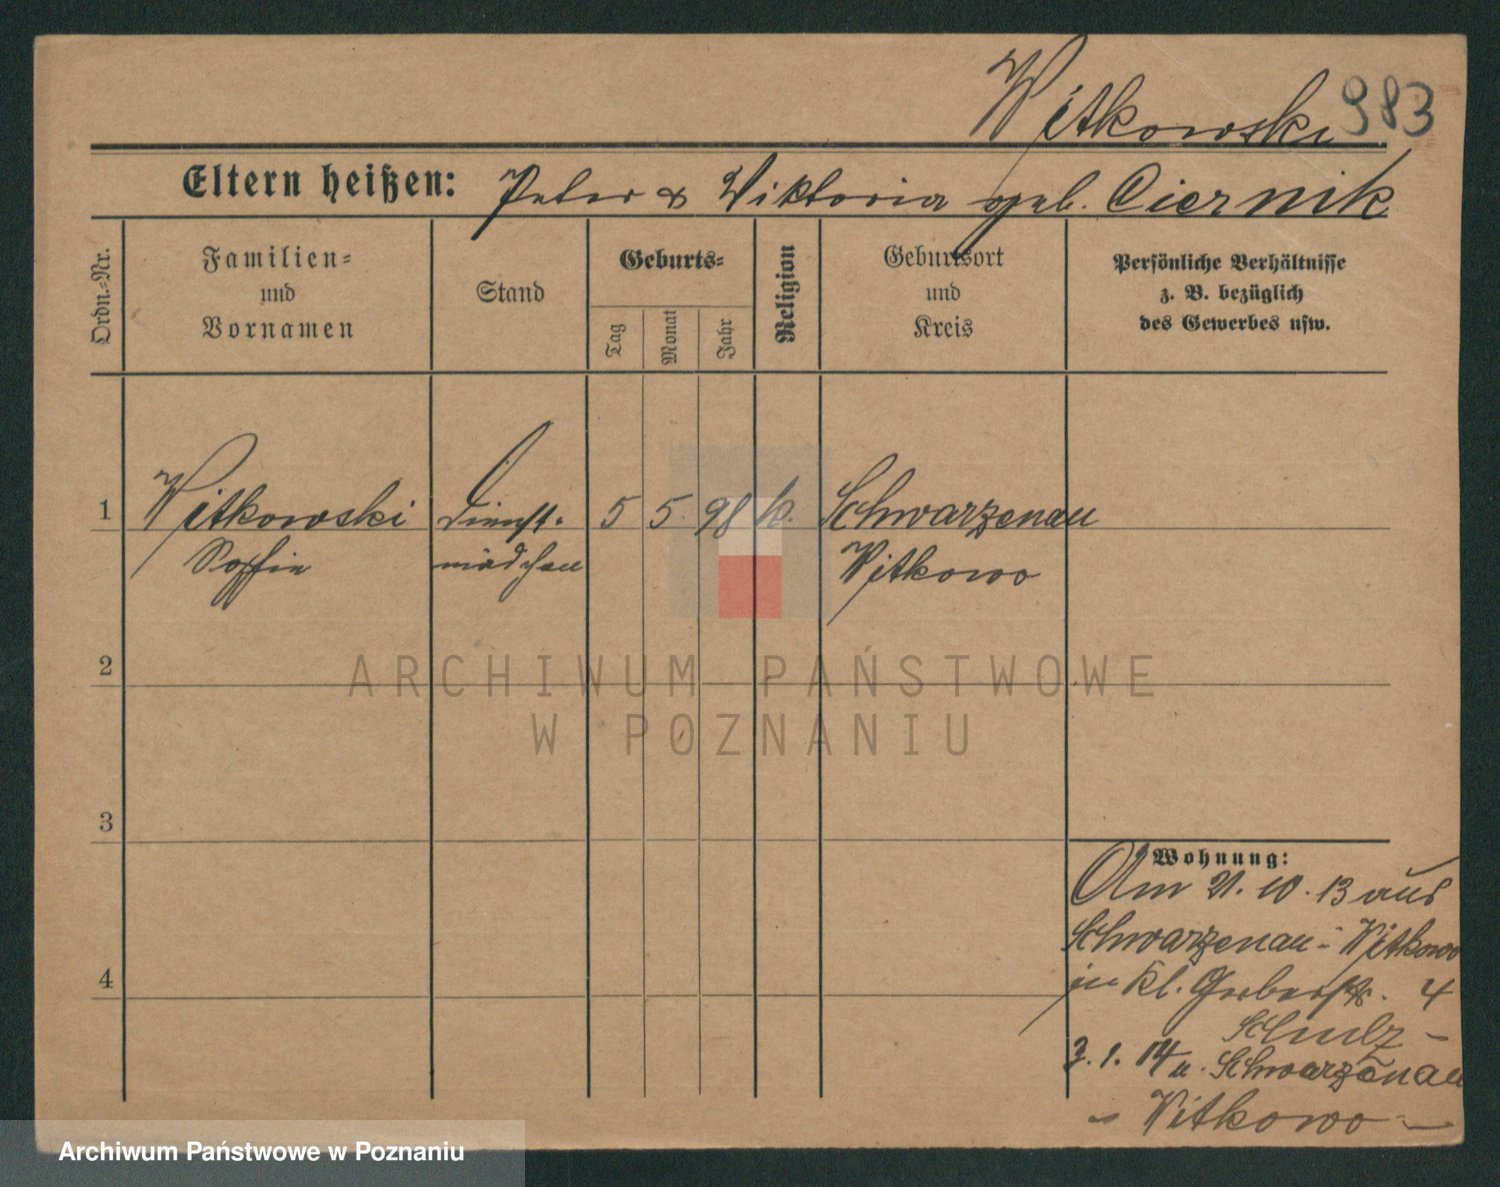 Witkowski 983
Eltern heißen: Peter & Viktoria geb. Ciernik
Ordn.-Nr.
Familien-
und
Vornamen
Stand
Geburts-
Tag
Monat
Jahr
Religion
Geburtsort
und
Kreis
Persönliche Verhältnisse
z. B. bezüglich
des Gewerbes usw.
1 Witkowski Dienst- 5 5. 98 k. Schwarzenau
Soffie mädchen Witkowo
2
ARCHIWUM PAŃSTWOWE
W POZNANIU
3
Wohnung:
Am 21. 10. 13 aus
Schwarzenau - Witkowo
4
in Kl. Gerberstr. 4
Schulz -
3. 1. 14 n. Schwarzenau
- Witkowo -
Archiwum Państwowe w Poznaniu